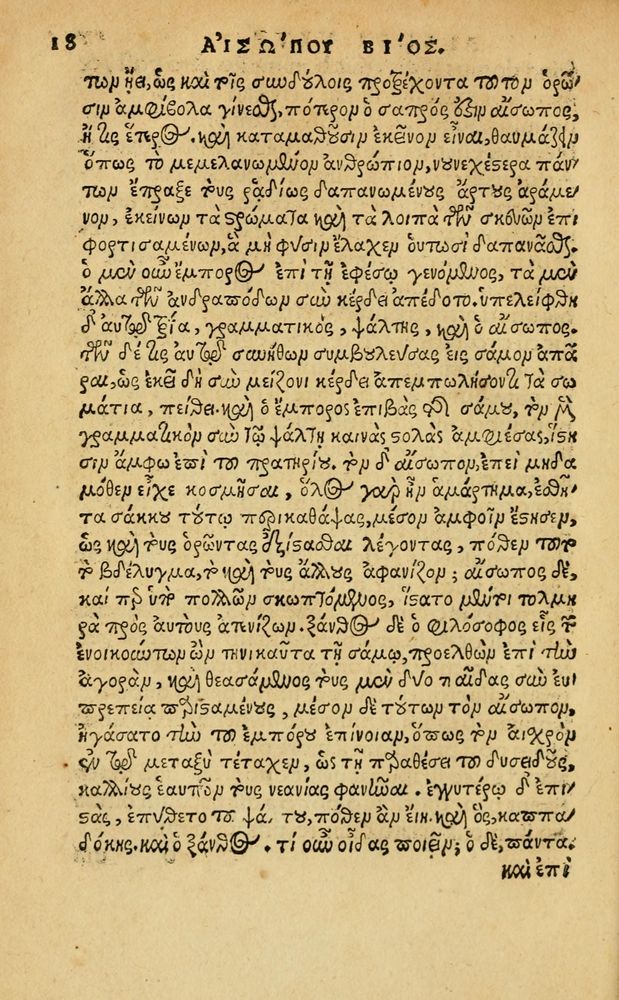 18 ΑἸΣΩ´ΠΟΥ ΒΙ´ΟΣ.
των ᾔει, ὡς καὶ τοῖς συνδούλοις προτρέχοντα τοῦτον ὁρῶ
σιν ἀμφίβολα γίνεσθαι, πότερον ὁ σαπρός ἐστιν αἴσωπος,
ἤ τις ἕτερος. καὶ καταμαθοῦσιν ἐκεῖνον εἶναι, θαυμάζειν
ὅπως τὸ μεμελανωμένον ἀνθρώπιον, νουνεχέστερα πάν
των ἔπραξε τοὺς ῥᾳδίως δαπανωμένους ἄρτους ἀράμε
νον, ἐκείνων τὰ στρώματα καὶ τὰ λοιπὰ τῶν σκευῶν ἐπι
φορτισαμένων, ἃ μὴ φύσιν ἔλαχεν οὑτωσὶ δαπανᾶσθαι.
ὁ μὲν οὖν ἔμπορος ἐπὶ τῇ ἐφέσῳ γενόμενος, τὰ μὲν
ἄλλα τῶν ἀνδραπόδων σὺν κέρδει ἀπέδοτο. ὑπελείφθη
δ' αὐτῷ τρία, γραμματικὸς, ψάλτης, καὶ ὁ αἴσωπος.
τῶν δέ τις αὐτῷ συνήθων συμβουλεύσας εἰς σάμον ἀπᾶ
ραι, ὡς ἐκεῖ δὴ σὺν μείζονι κέρδει ἀπεμπωλήσοντι τὰ σω
μάτια, πείθει. καὶ ὁ ἔμπορος ἐπιβὰς τῆς σάμου, τὸν μὲν
γραμματικὸν σὺν τῷ ψάλτῃ καινὰς στολὰς ἀμφιέσας, ἵστη
σιν ἄμφω ἐπὶ τοῦ πρατηρίου. τὸν δ' αἴσωπον, ἐπεὶ μηδα
μόθεν εἶχε κοσμῆσαι, ὅλος γὰρ ἦν ἁμάρτημα, ἐσθῆ
τα σάκκου τούτῳ περικαθάψας, μέσον ἀμφοῖν ἔστησεν,
ὡς καὶ τοὺς ὁρῶντας ἐξίστασθαι λέγοντας, πόθεν τοῦτο
τὸ βδέλυγμα, τὸ καὶ τοὺς ἄλλους ἀφανίζον; αἴσωπος δὲ,
καί περ ὑπὸ πολλῶν σκωπτόμενος, ἵστατο μέντοι τολμη
ρὰ πρὸς αὐτοὺς ἀτενίζων. ξάνθος δὲ ὁ φιλόσοφος εἷς τῶν
ἐνοικούντων ὢν τηνικαῦτα τῇ σάμῳ, προελθὼν ἐπὶ τὴν
ἀγορὰν, καὶ θεασάμενος τοὺς μὲν δύο παῖδας σὺν εὐ
πρεπείᾳ παρισταμένους, μέσον δὲ τούτων τὸν αἴσωπον,
ἠγάσατο τὴν τοῦ ἐμπόρου ἐπίνοιαν, ὅπως τὸν αἰσχρὸν
ἐν τῷ μεταξὺ τέταχεν, ὡς τῇ παραθέσει τοῦ δυσειδοῦς,
καλλίους ἑαυτῶν τοὺς νεανίας φανῆναι. ἐγγυτέρω δ' ἐπι
στὰς, ἐπύθετο τοῦ ψάλτου, πόθεν ἂν εἴη. καὶ ὃς, καππα
δόκης. καὶ ὁ ξάνθος. τί οὖν οἶδας ποιεῖν; ὁ δὲ, πάντα.
καὶ ἐπὶ